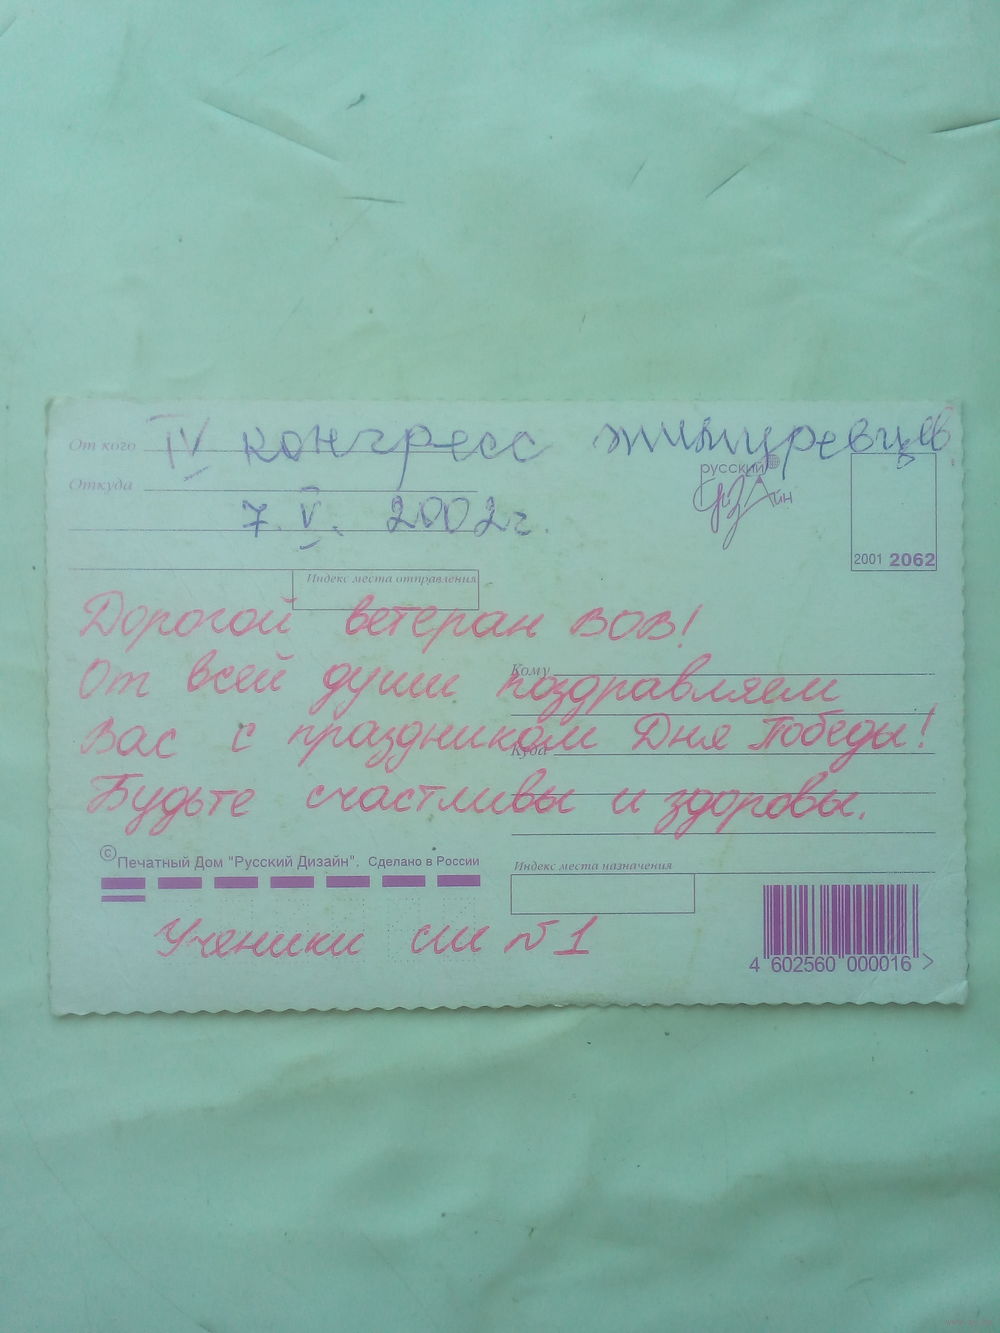 От кого IV конгресс тимуревцев
Откуда
7. V. 2002г.
русский
дизАйн
2001 2062
Индекс места отправления
Дорогой ветеран ВОВ!
От всей души поздравляем
Кому
Вас с праздником Дня Победы!
Куда
Будьте счастливы и здоровы.
© Печатный Дом "Русский Дизайн". Сделано в России
Индекс места назначения
Ученики сш №1
4 602560 000016 >